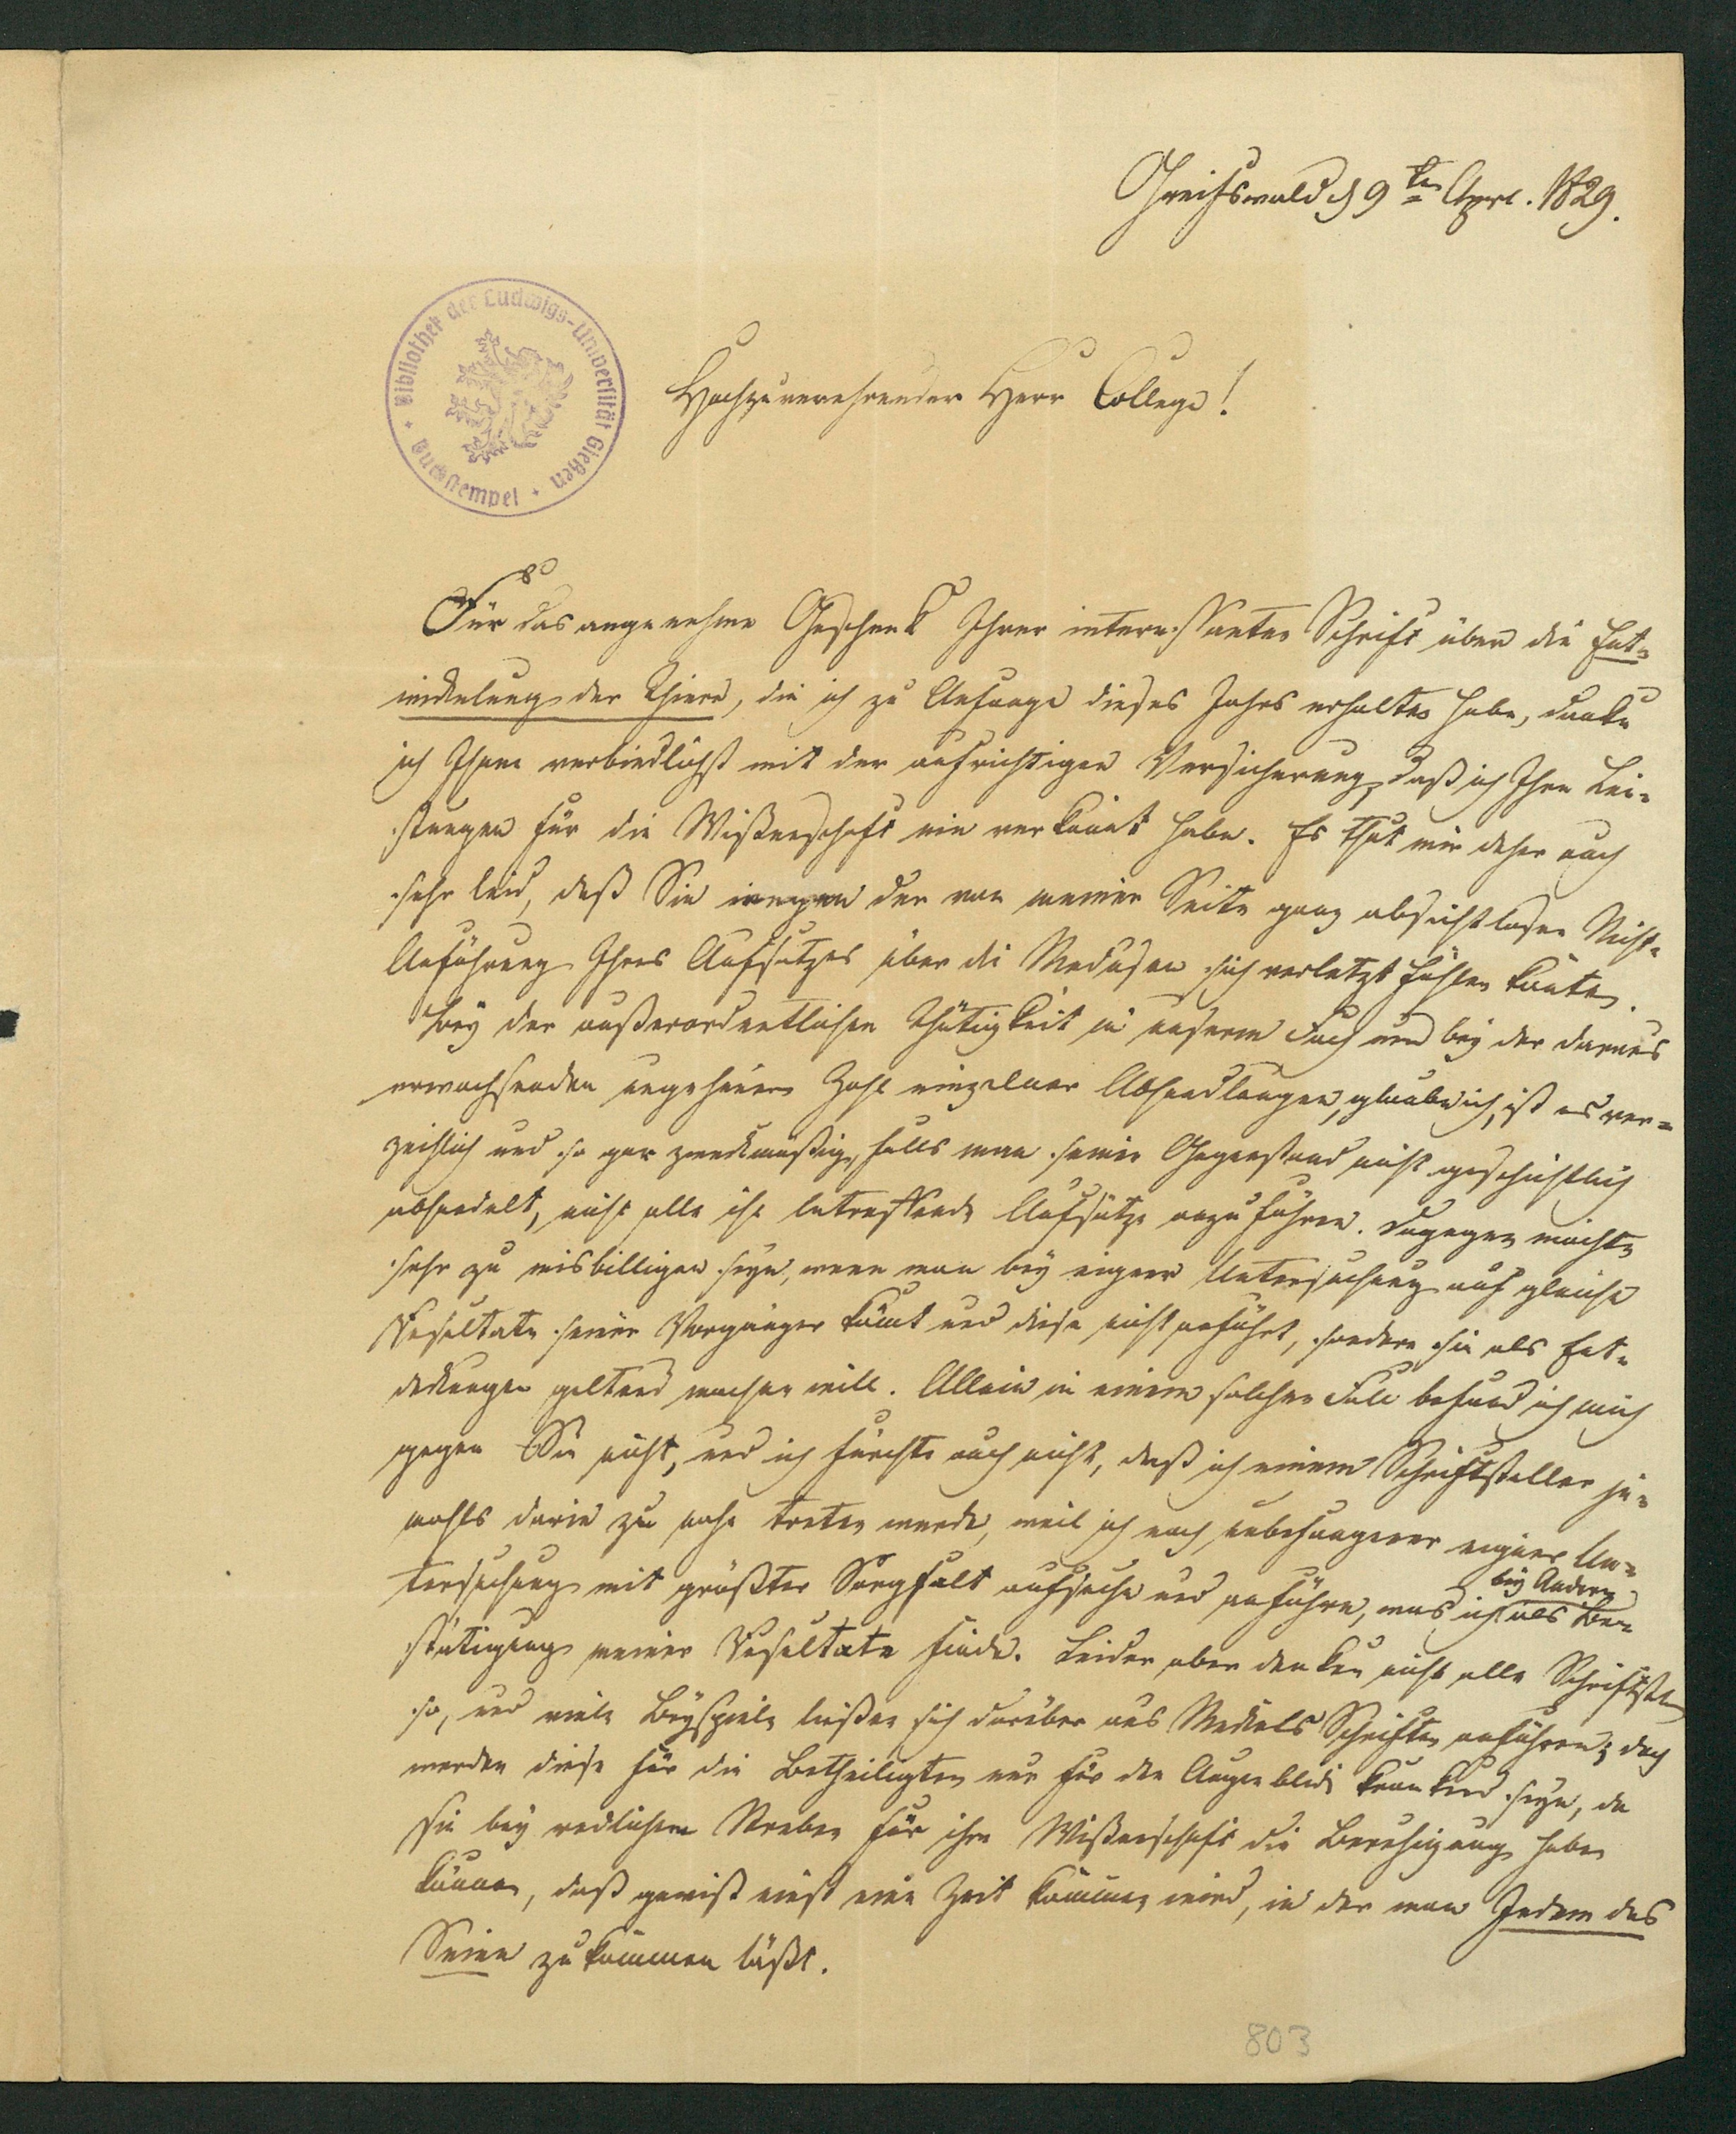 Greifswald d 9ten Aprl. 1829.
Bibliothek der Ludwigs-Universität Gießen
Buchstempel
Hochzuverehrender Herr College!
Für das angenehme Geschenk Ihrer interessanten Schrift über die Ent-
wickelung der Thiere, die ich zu Anfange dieses Jahrs erhalten habe, danke
ich Ihnen verbindlichst mit der aufrichtigen Versicherung, daß ich Ihre Lei-
stungen für die Wißenschaft nie verkannt habe. Es thut mir daher auch
sehr leid, daß Sie wegen der von meiner Seite ganz absichtlosen Nicht-
Anführung Ihres Aufsatzes über die Medusen sich verletzt fühlen konnten.
Bey der außerordentlichen Thätigkeit in unserem Fach und bey der daraus
erwachsenden ungeheuren Zahl einzelner Abhandlungen, glaube ich, ist es ver-
zeihlich und so gar zweckmäßig, falls man seinen Gegenstand nicht geschichtlich
abhandelt, nicht alle ihn betreffende Aufsätze anzuführen. Dagegen möchte
sehr zu misbilligen seyn, wenn man bey eigner Untersuchung auf gleiche
Resultate seiner Vorgänger kömt und diese nicht anführt, sondern sie als Ent-
deckungen geltend machen will. Allein in einem solchen Fall befand ich mich
gegen Sie nicht, und ich fürchte auch nicht, daß ich einem Schriftsteller je-
mahls darin zu nahe treten werde, weil ich nach unbefangener eigner Un-
tersuchung mit größter Sorgfalt aufsuche und anführe, was ich bey Andern als Be-
stätigung meiner Resultate finde. Leider aber denken nicht alle Schriftstel
so, und viele Beyspiele ließen sich darüber aus Meckels Schriften anführen; doch
werden diese für die Betheiligten nur für den Augenblick krankend seyn, da
sie bey redlichem Streben für ihre Wißenschaft die Beruhigung haben
können, daß gewiß einst eine Zeit kommen wird, in der man Jedem das
Seine zukommen läßt.
803